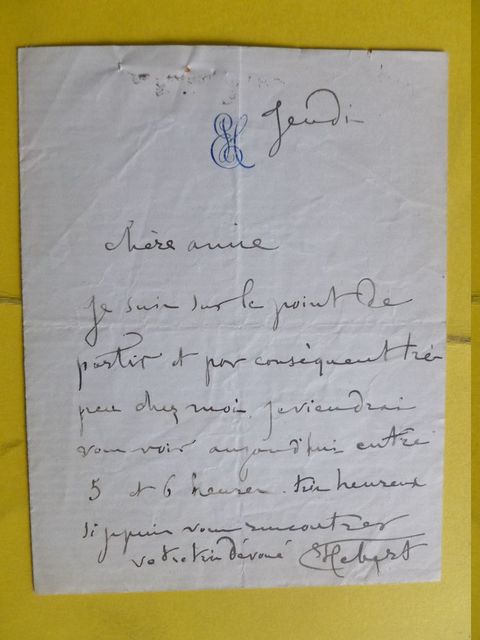 Jeudi
EH
chère amie
je suis sur le point de
partir et par conséquent très
peu chez moi, je viendrai
vous voir aujourd'hui entre
5 et 6 heures. très heureux
si je puis vous rencontrer
votre très dévoué EHébert